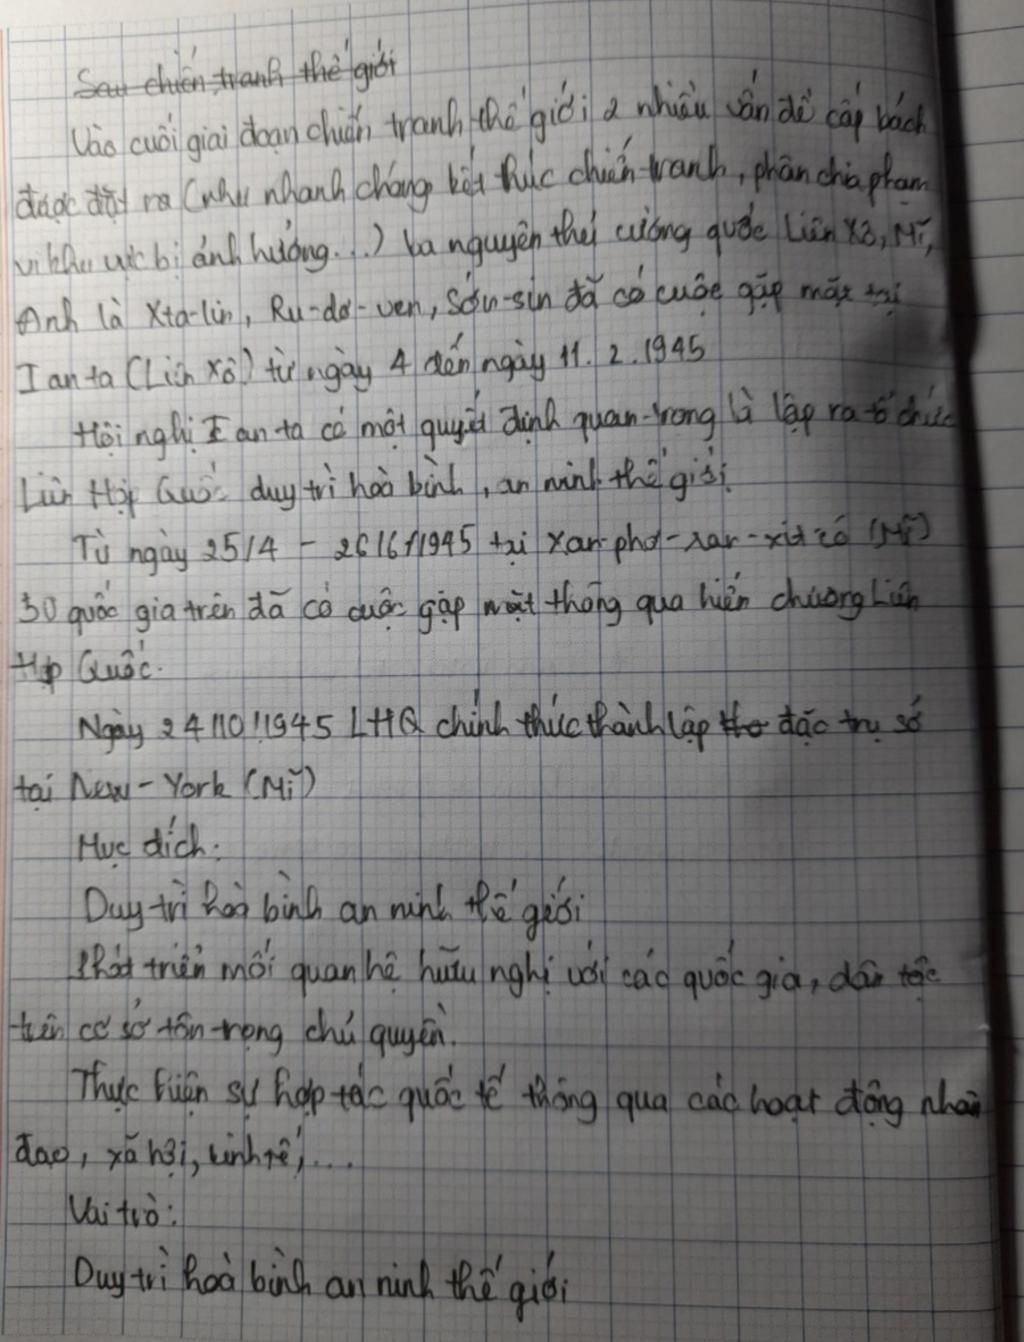 Sau chiến tranh thế giới
Vào cuối giai đoạn chiến tranh thế giới 2 nhiều vấn đề cấp bách
được đặt ra (như nhanh chóng kết thúc chiến tranh, phân chia phạm
vi khu vực bị ảnh hưởng...) ba nguyên thủ cường quốc Liên Xô, Mĩ,
Anh là Xta-lin, Ru-dơ-ven, Sớc-sin đã có cuộc gặp mặt tại
I an ta (Liên Xô) từ ngày 4 đến ngày 11.2.1945
Hội nghị I an ta có một quyết định quan trọng là lập ra tổ chức
Liên Hợp Quốc duy trì hoà bình, an ninh thế giới.
Từ ngày 25/4 - 26/6/1945 tại Xan-phơ-xan-xit-cô (Mĩ)
50 quốc gia trên đã có cuộc gặp mặt thông qua hiến chương Liên
Hợp Quốc.
Ngày 24/10/1945 LHQ chính thức thành lập đặc trụ số
tại New-York (Mĩ)
Mục đích:
Duy trì hoà bình an ninh thế giới
Phát triển mối quan hệ hữu nghị với các quốc gia, dân tộc
trên cơ sở tôn trọng chủ quyền.
Thực hiện sự hợp tác quốc tế thông qua các hoạt động nhân
đạo, xã hội, kinh tế,....
Vai trò:
Duy trì hoà bình an ninh thế giới